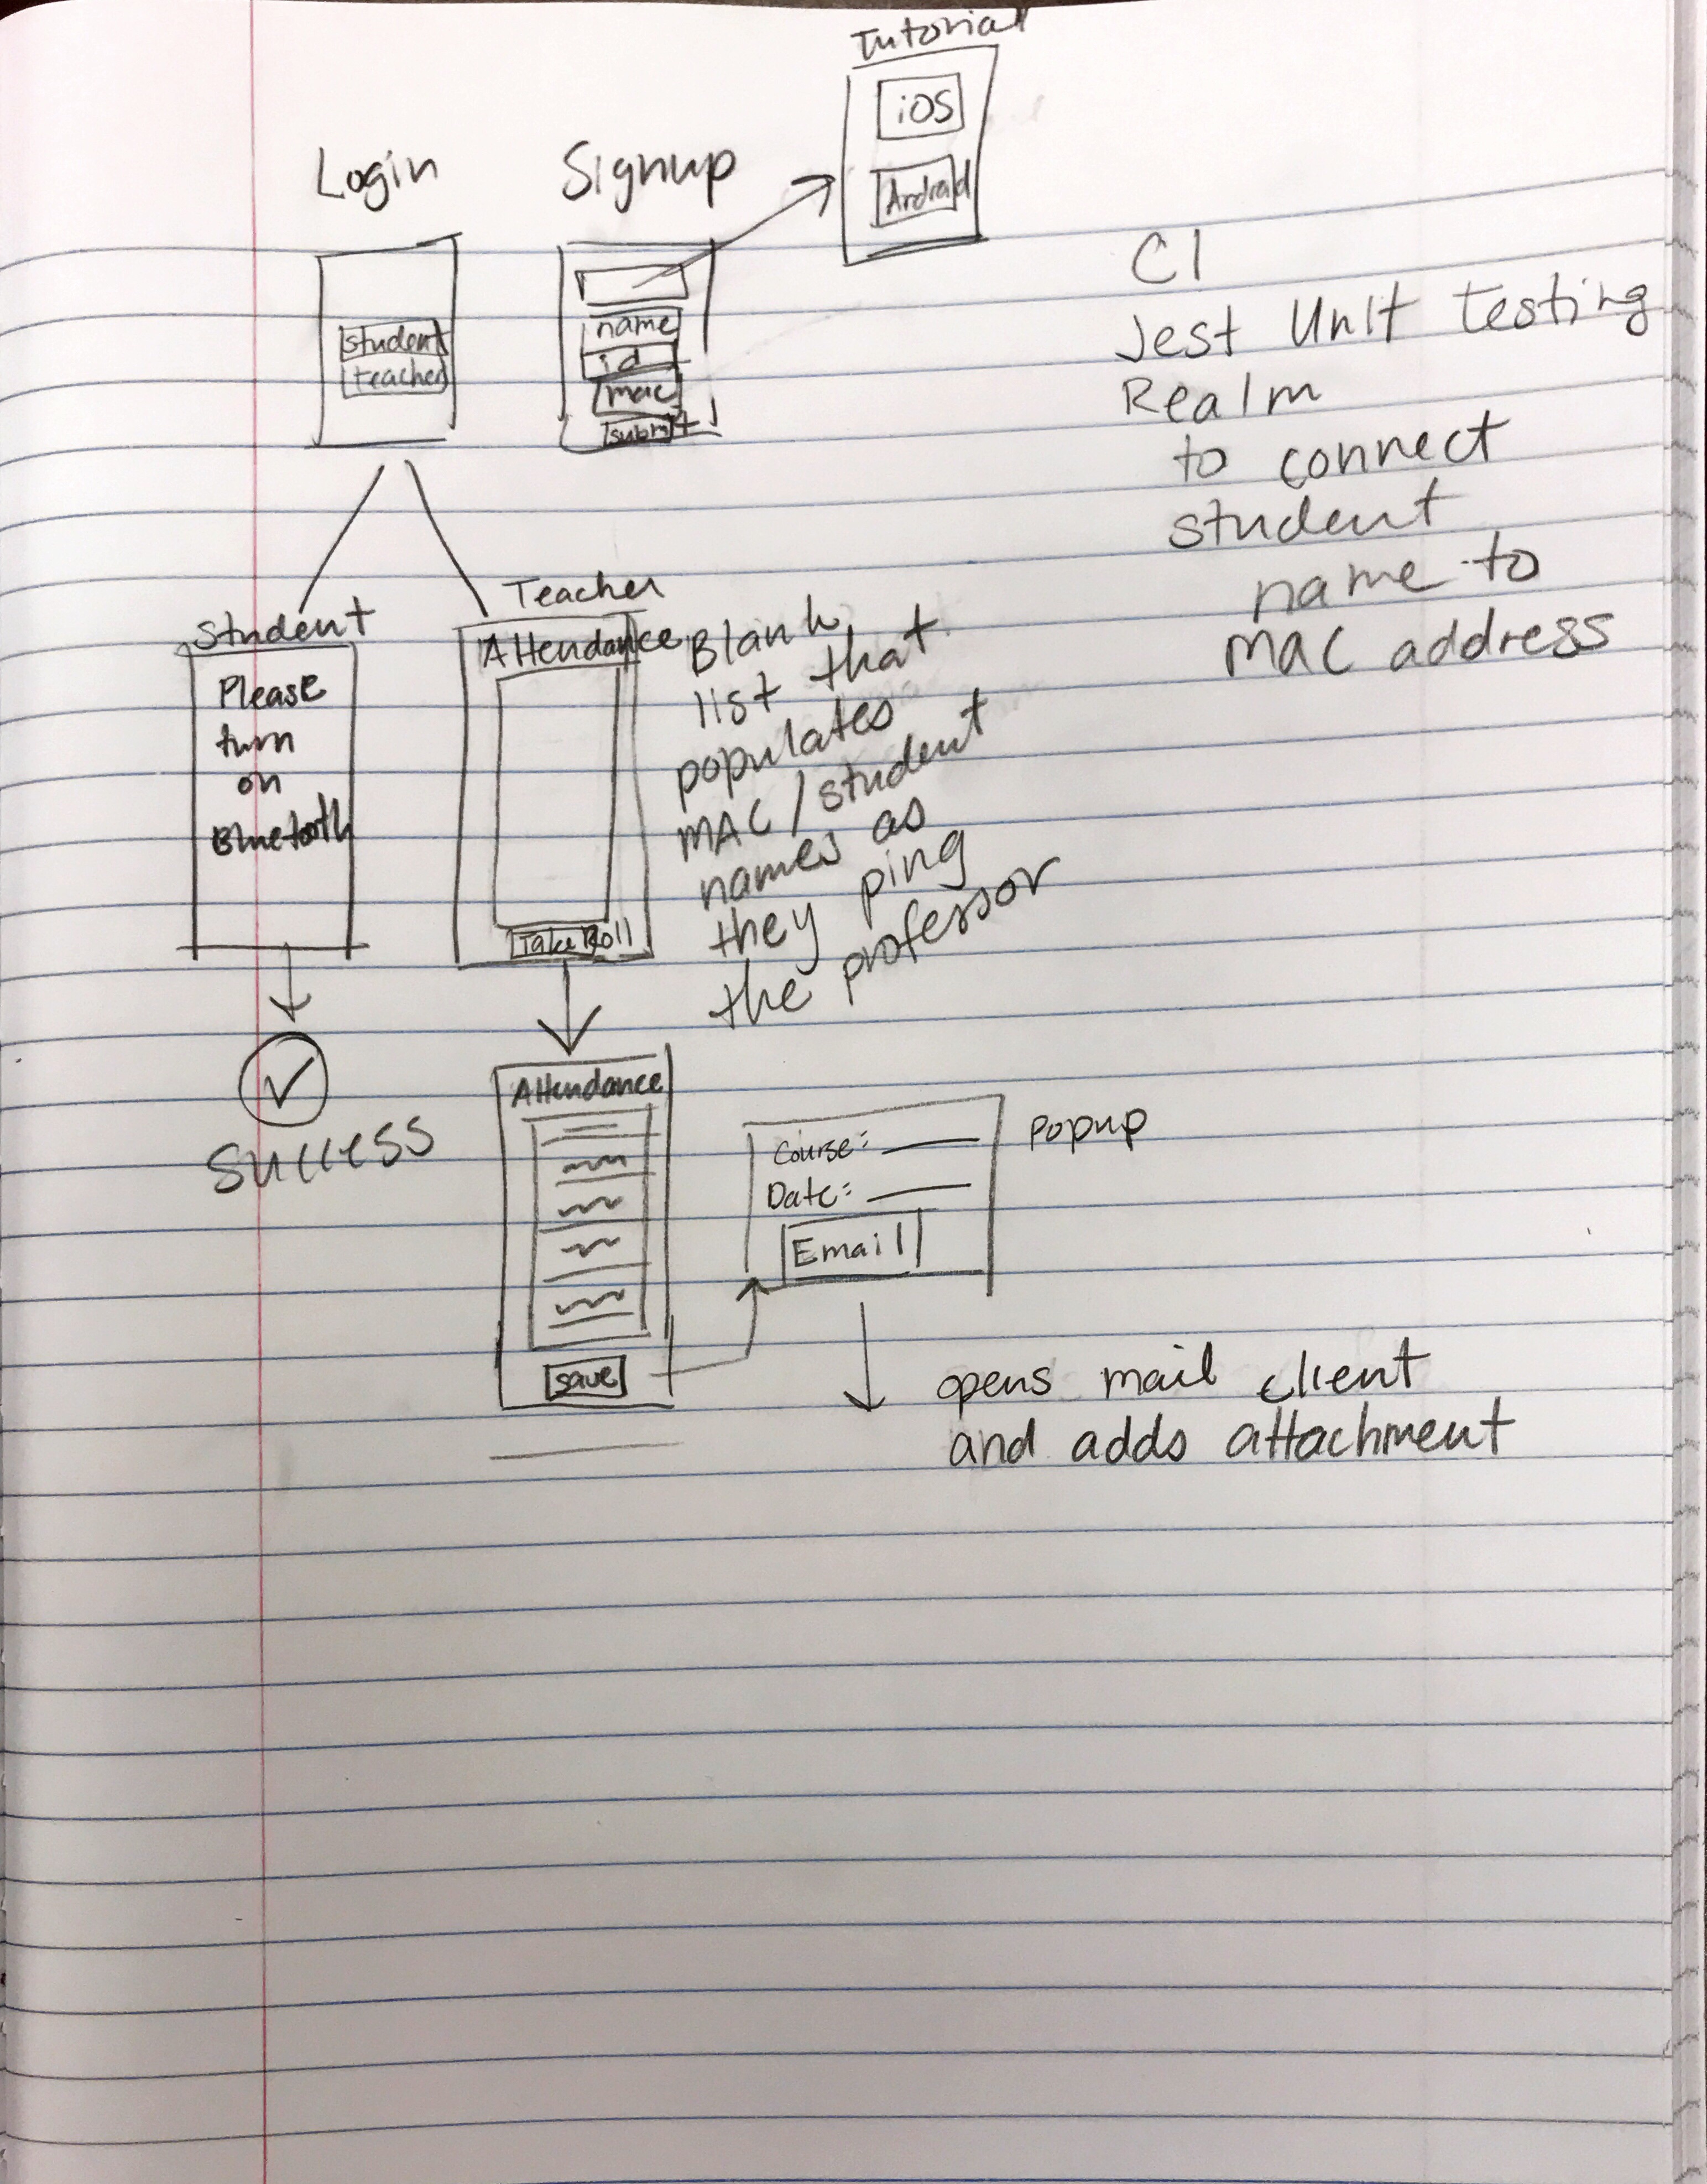 Tutorial
iOS
Android
Login
student
teacher
Signup
name
id
mac
submit
CI
Jest Unit Testing
Realm
to connect
student
name to
MAC address
Student
Please
turn
on
Bluetooth
Success
Teacher
Attendance
Take Roll
Blank
list that
populates
MAC/student
names as
they ping
the professor
Attendance
save
Popup
Course:
Date:
Email
opens mail client
and adds attachment